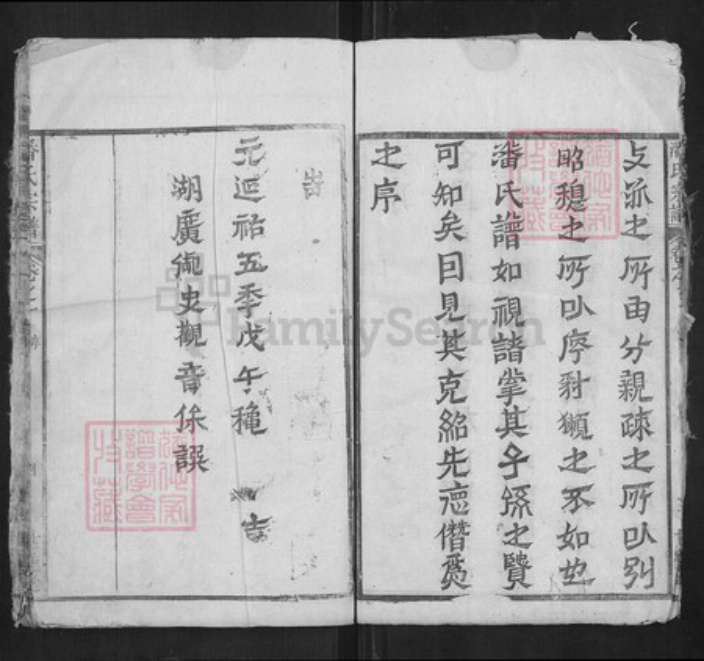 之派之所由分親疎之所以別
昭穆之所以序豺獺之不如也
潘氏譜如視諸掌其子孫之賢
可知矣因見其克紹先志僭爲
之序
吉
元延祐五季戊午穐 吉
湖廣御史觀音保譔
潘氏宗譜
FamilySearch